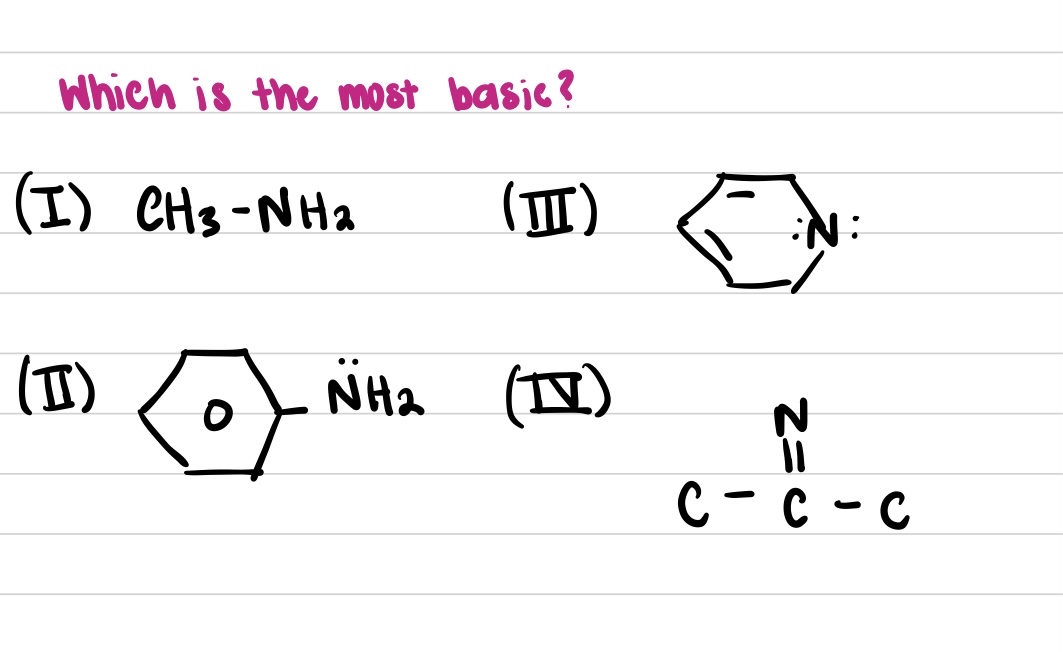 Which is the most basic?
(I) CH3-NH2
(III) :N:
(II) O -N̈H2
(IV)
N
||
C - C - C